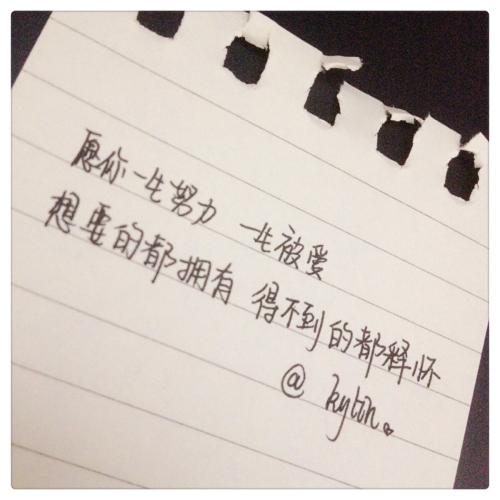 愿你一生努力 一生被爱
想要的都拥有 得不到的都释怀
@ kylin。